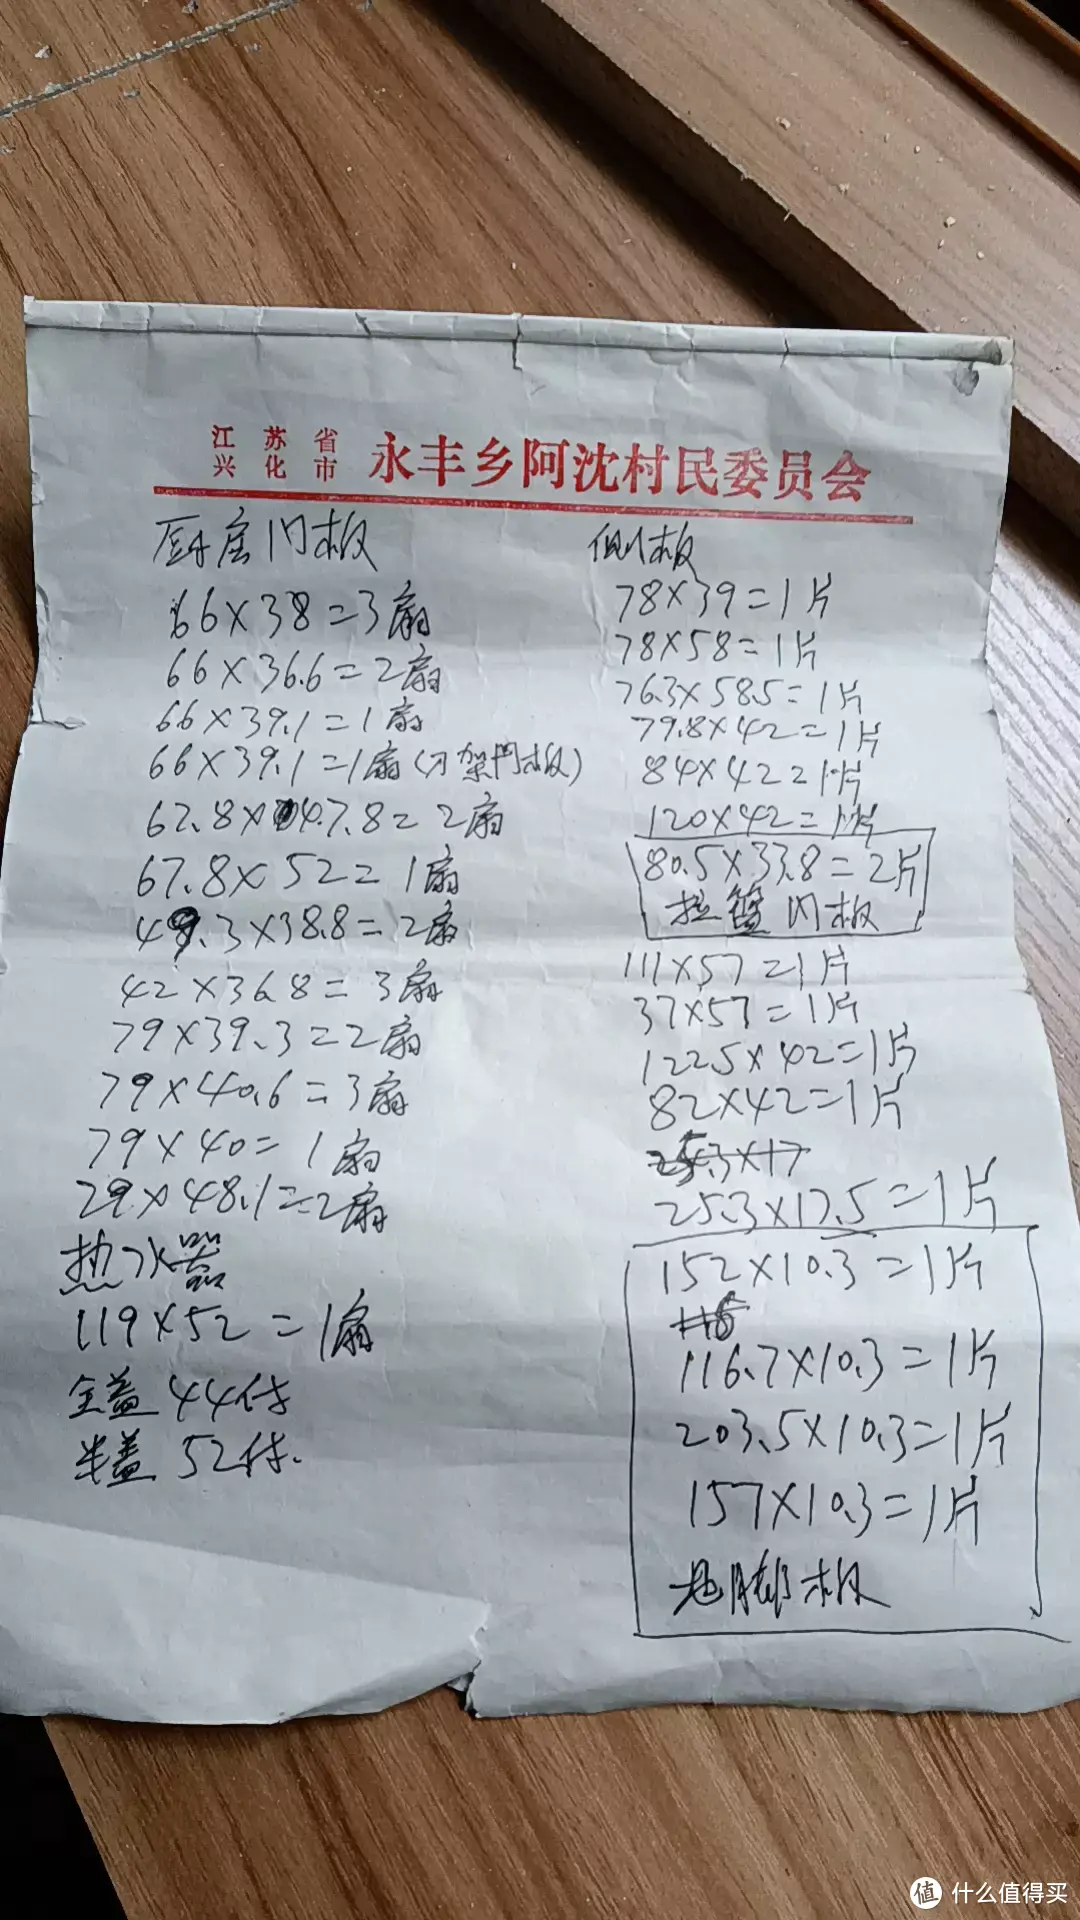 江苏省
兴化市
永丰乡阿沈村民委员会
厨房门板
66×38=3扇
66×36.6=2扇
66×39.1=1扇
66×39.1=1扇(刀架门板)
67.8×47.8=2扇
67.8×52=1扇
49.3×38.8=2扇
42×36.8=3扇
79×39.3=2扇
79×40.6=3扇
79×40=1扇
79×48.1=2扇
热水器
119×52=1扇
全盖 44付
半盖 52付.
侧板
78×39=1片
78×58=1片
76.3×58.5=1片
79.8×42=1片
84×42=1片
120×42=1片
80.5×33.8=2片
拉篮门板
111×57=1片
37×57=1片
122.5×42=1片
82×42=1片
25.3×17
25.3×17.5=1片
152×10.3=1片
116.7×10.3=1片
203.5×10.3=1片
157×10.3=1片
地脚板
值 什么值得买